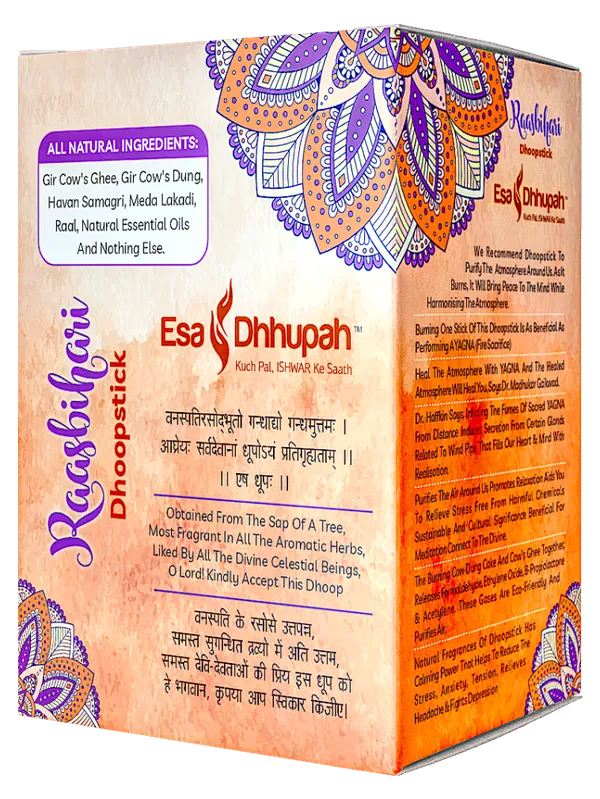 ALL NATURAL INGREDIENTS:
Gir Cow's Ghee, Gir Cow's Dung,
Havan Samagri, Meda Lakadi,
Raal, Natural Essential Oils
And Nothing Else.
Raasbihari
Dhoopstick
Esa Dhhupah™
Kuch Pal, ISHWAR Ke Saath
वनस्पतिरसोद्भूतो गन्धाद्यो गन्धमुत्तमः ।
आघ्रेयः सर्वदेवानां धूपोऽयं प्रतिगृह्यताम् ।।
।। एष धूपः ।।
Obtained From The Sap Of A Tree,
Most Fragrant In All The Aromatic Herbs,
Liked By All The Divine Celestial Beings,
O Lord! Kindly Accept This Dhoop
वनस्पति के रसोसे उत्तपन्न,
समस्त सुगन्धित द्रव्यों में अति उत्तम,
समस्त देवि-देवताओं की प्रिय इस धूप को
हे भगवान, कृपया आप स्विकार किजीए।
Raasbihari
Dhoopstick
Esa Dhhupah™
Kuch Pal, ISHWAR Ke Saath
We Recommend Dhoopstick To
Purify The Atmosphere Around Us. As It
Burns, It Will Bring Peace To The Mind While
Harmonising The Atmosphere.
Burning One Stick Of This Dhoopstick Is As Beneficial As
Performing A YAGNA (Fire Sacrifice)
Heal The Atmosphere With YAGNA And The Healed
Atmosphere Will Heal You, Says Dr. Madhukar Gaikwad.
Dr. Hafflkin Says, Inhaling The Fumes Of Sacred YAGNA
From Distance Induces Secretion From Certain Glands
Related To Wind Pipe That Fills Our Heart & Mind With
Realisation.
Purifies The Air Around Us Promotes Relaxation Aids You
To Relieve Stress Free From Harmful Chemicals
Sustainable And Cultural Significance Beneficial For
Meditation Connect To The Divine.
The Burning Cow Dung Cake And Cow's Ghee Together,
Releases Formaldehyde, Ethylene Oxide, B-Propiolactone
& Acetylene. These Gases Are Eco-Friendly And
Purifies Air.
Natural Fragrances Of Dhoopstick Has
Calming Power That Helps To Reduce The
Stress, Anxiety, Tension, Relieves
Headache & Fights Depression